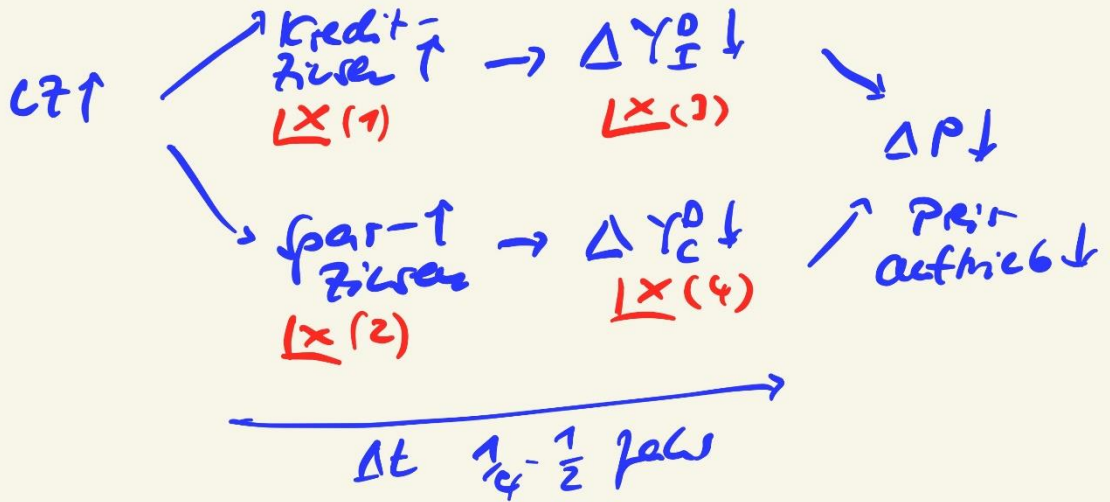 LZ↑
Kredit-
Zinsen ↑ → Δ Y_I^D ↓
⌊X (1)
⌊X (3)
ΔP↓
Spar-↑
Zinsen → Δ Y_C^D ↓
Preis-
auftrieb ↓
⌊X (2)
⌊X (4)
Δt 1/4 - 1/2 Jahr